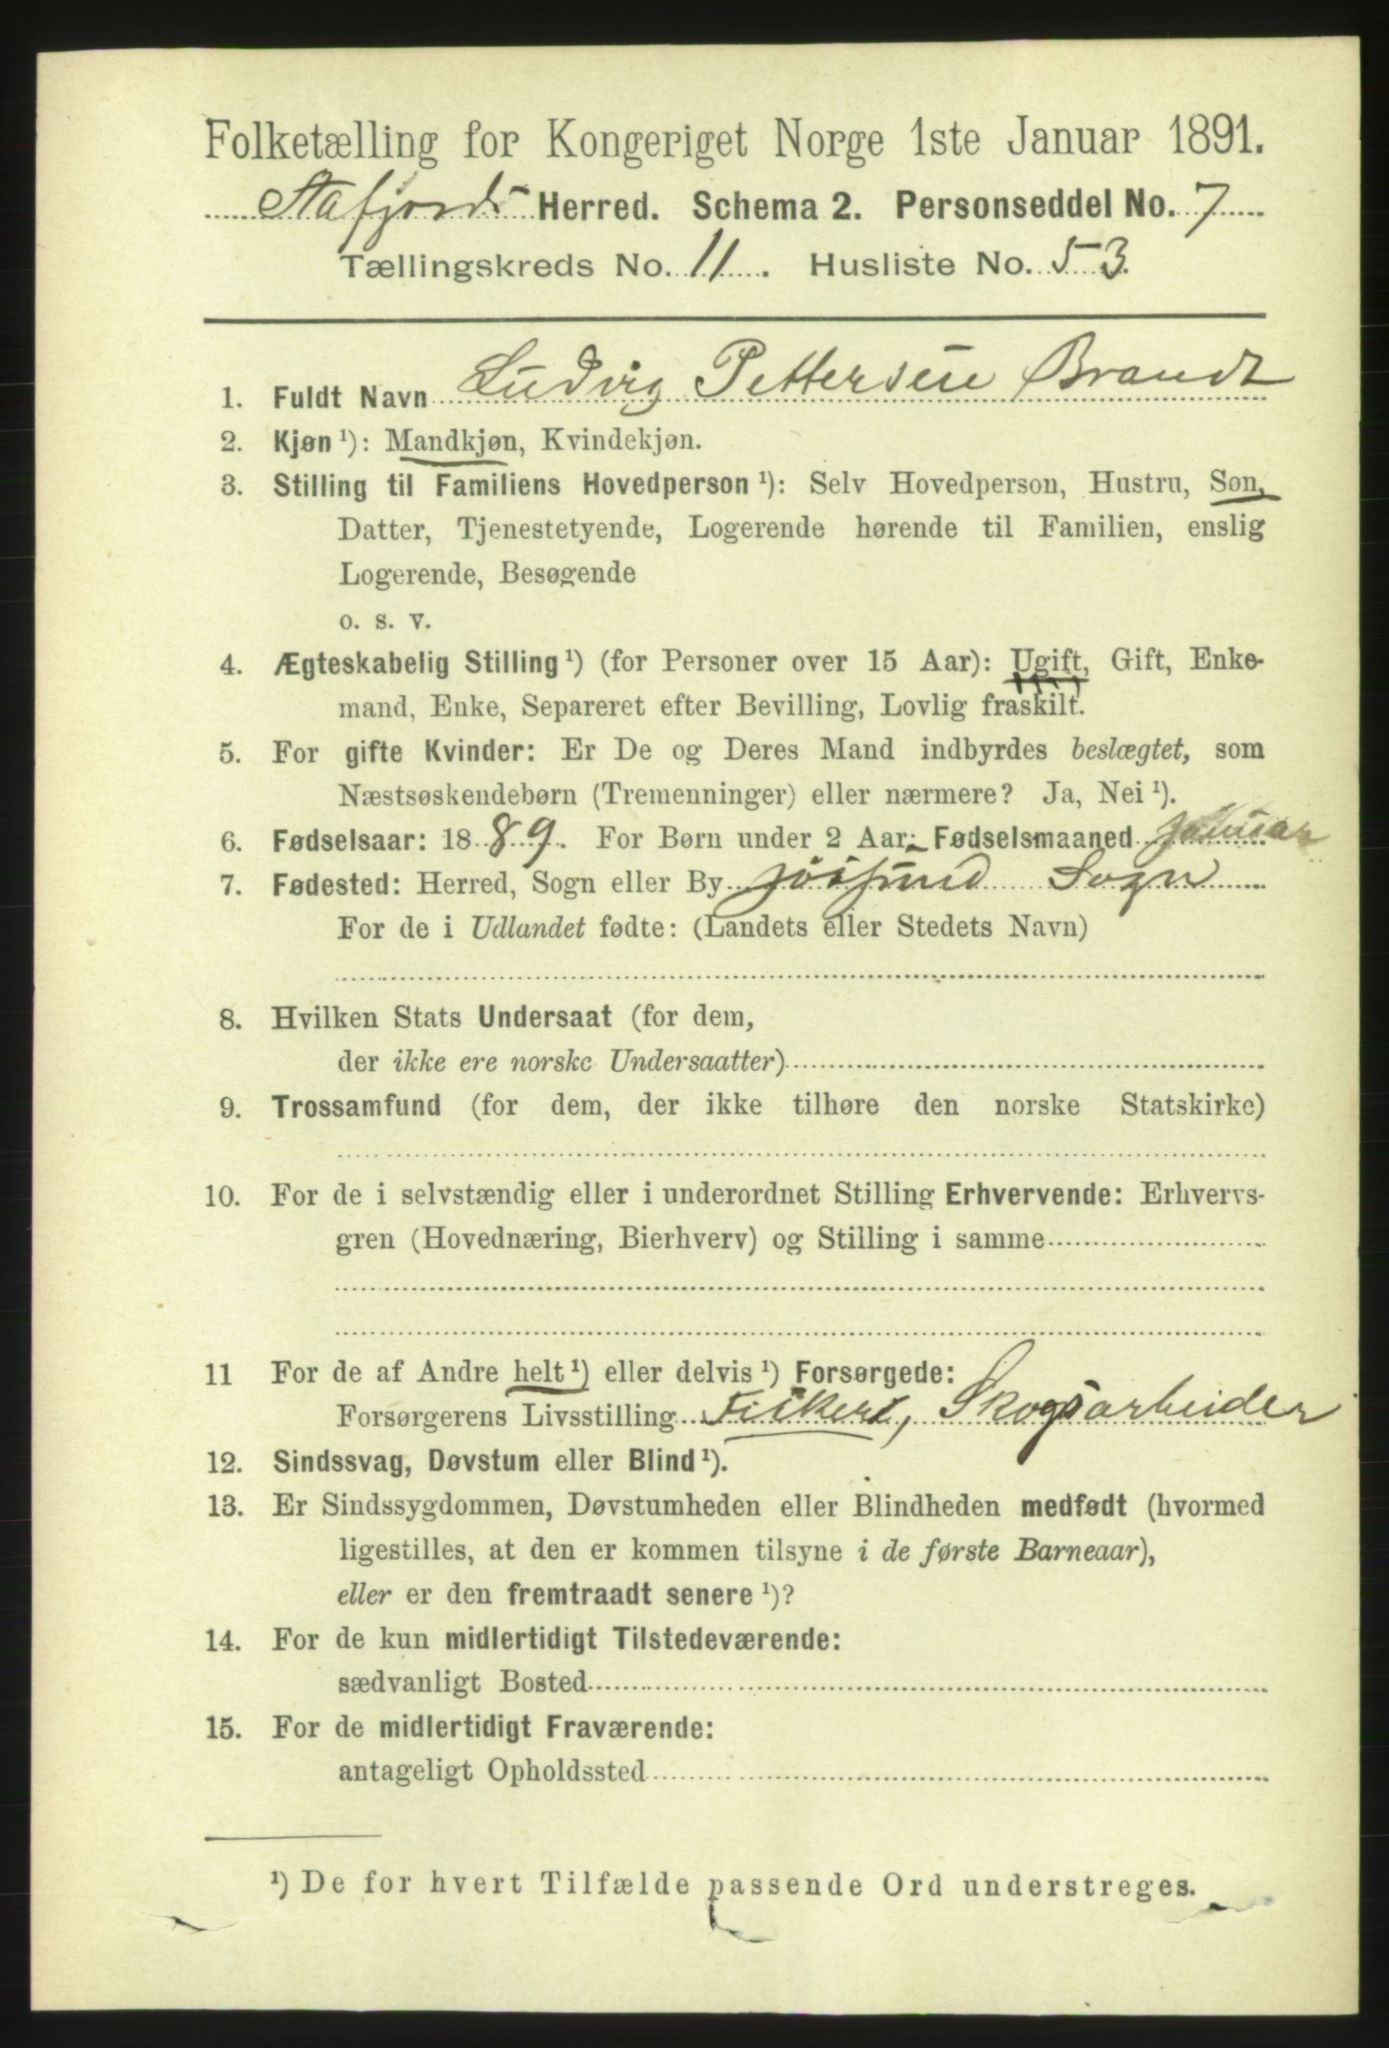 Folketælling for Kongeriget Norge 1ste Januar 1891.
Stafjords Herred. Schema 2. Personseddel No. 7
Tællingskreds No. 11. Husliste No. 53.
1. Fuldt Navn Ludvig Pettersen Brandt
2. Kjøn ¹): Mandkjøn, Kvindekjøn.
3. Stilling til Familiens Hovedperson ¹): Selv Hovedperson, Hustru, Søn,
Datter, Tjenestetyende, Logerende hørende til Familien, enslig
Logerende, Besøgende
o. s. v.
4. Ægteskabelig Stilling ¹) (for Personer over 15 Aar): Ugift, Gift, Enke-
mand, Enke, Separeret efter Bevilling, Lovlig fraskilt.
5. For gifte Kvinder: Er De og Deres Mand indbyrdes beslægtet, som
Næstsøskendebørn (Tremenninger) eller nærmere? Ja, Nei ¹).
6. Fødselsaar: 1889. For Børn under 2 Aar: Fødselsmaaned Januar
7. Fødested: Herred, Sogn eller By Jøsund Sogn
For de i Udlandet fødte: (Landets eller Stedets Navn)
8. Hvilken Stats Undersaat (for dem,
der ikke ere norske Undersaatter)
9. Trossamfund (for dem, der ikke tilhøre den norske Statskirke)
10. For de i selvstændig eller i underordnet Stilling Erhvervende: Erhvervs-
gren (Hovednæring, Bierhverv) og Stilling i samme
11 For de af Andre helt ¹) eller delvis ¹) Forsørgede:
Forsørgerens Livsstilling Fisker, Skogsarbeider
12. Sindssvag, Døvstum eller Blind ¹).
13. Er Sindssygdommen, Døvstumheden eller Blindheden medfødt (hvormed
ligestilles, at den er kommen tilsyne i de første Barneaar),
eller er den fremtraadt senere ¹)?
14. For de kun midlertidigt Tilstedeværende:
sædvanligt Bosted
15. For de midlertidigt Fraværende:
antageligt Opholdssted
¹) De for hvert Tilfælde passende Ord understreges.